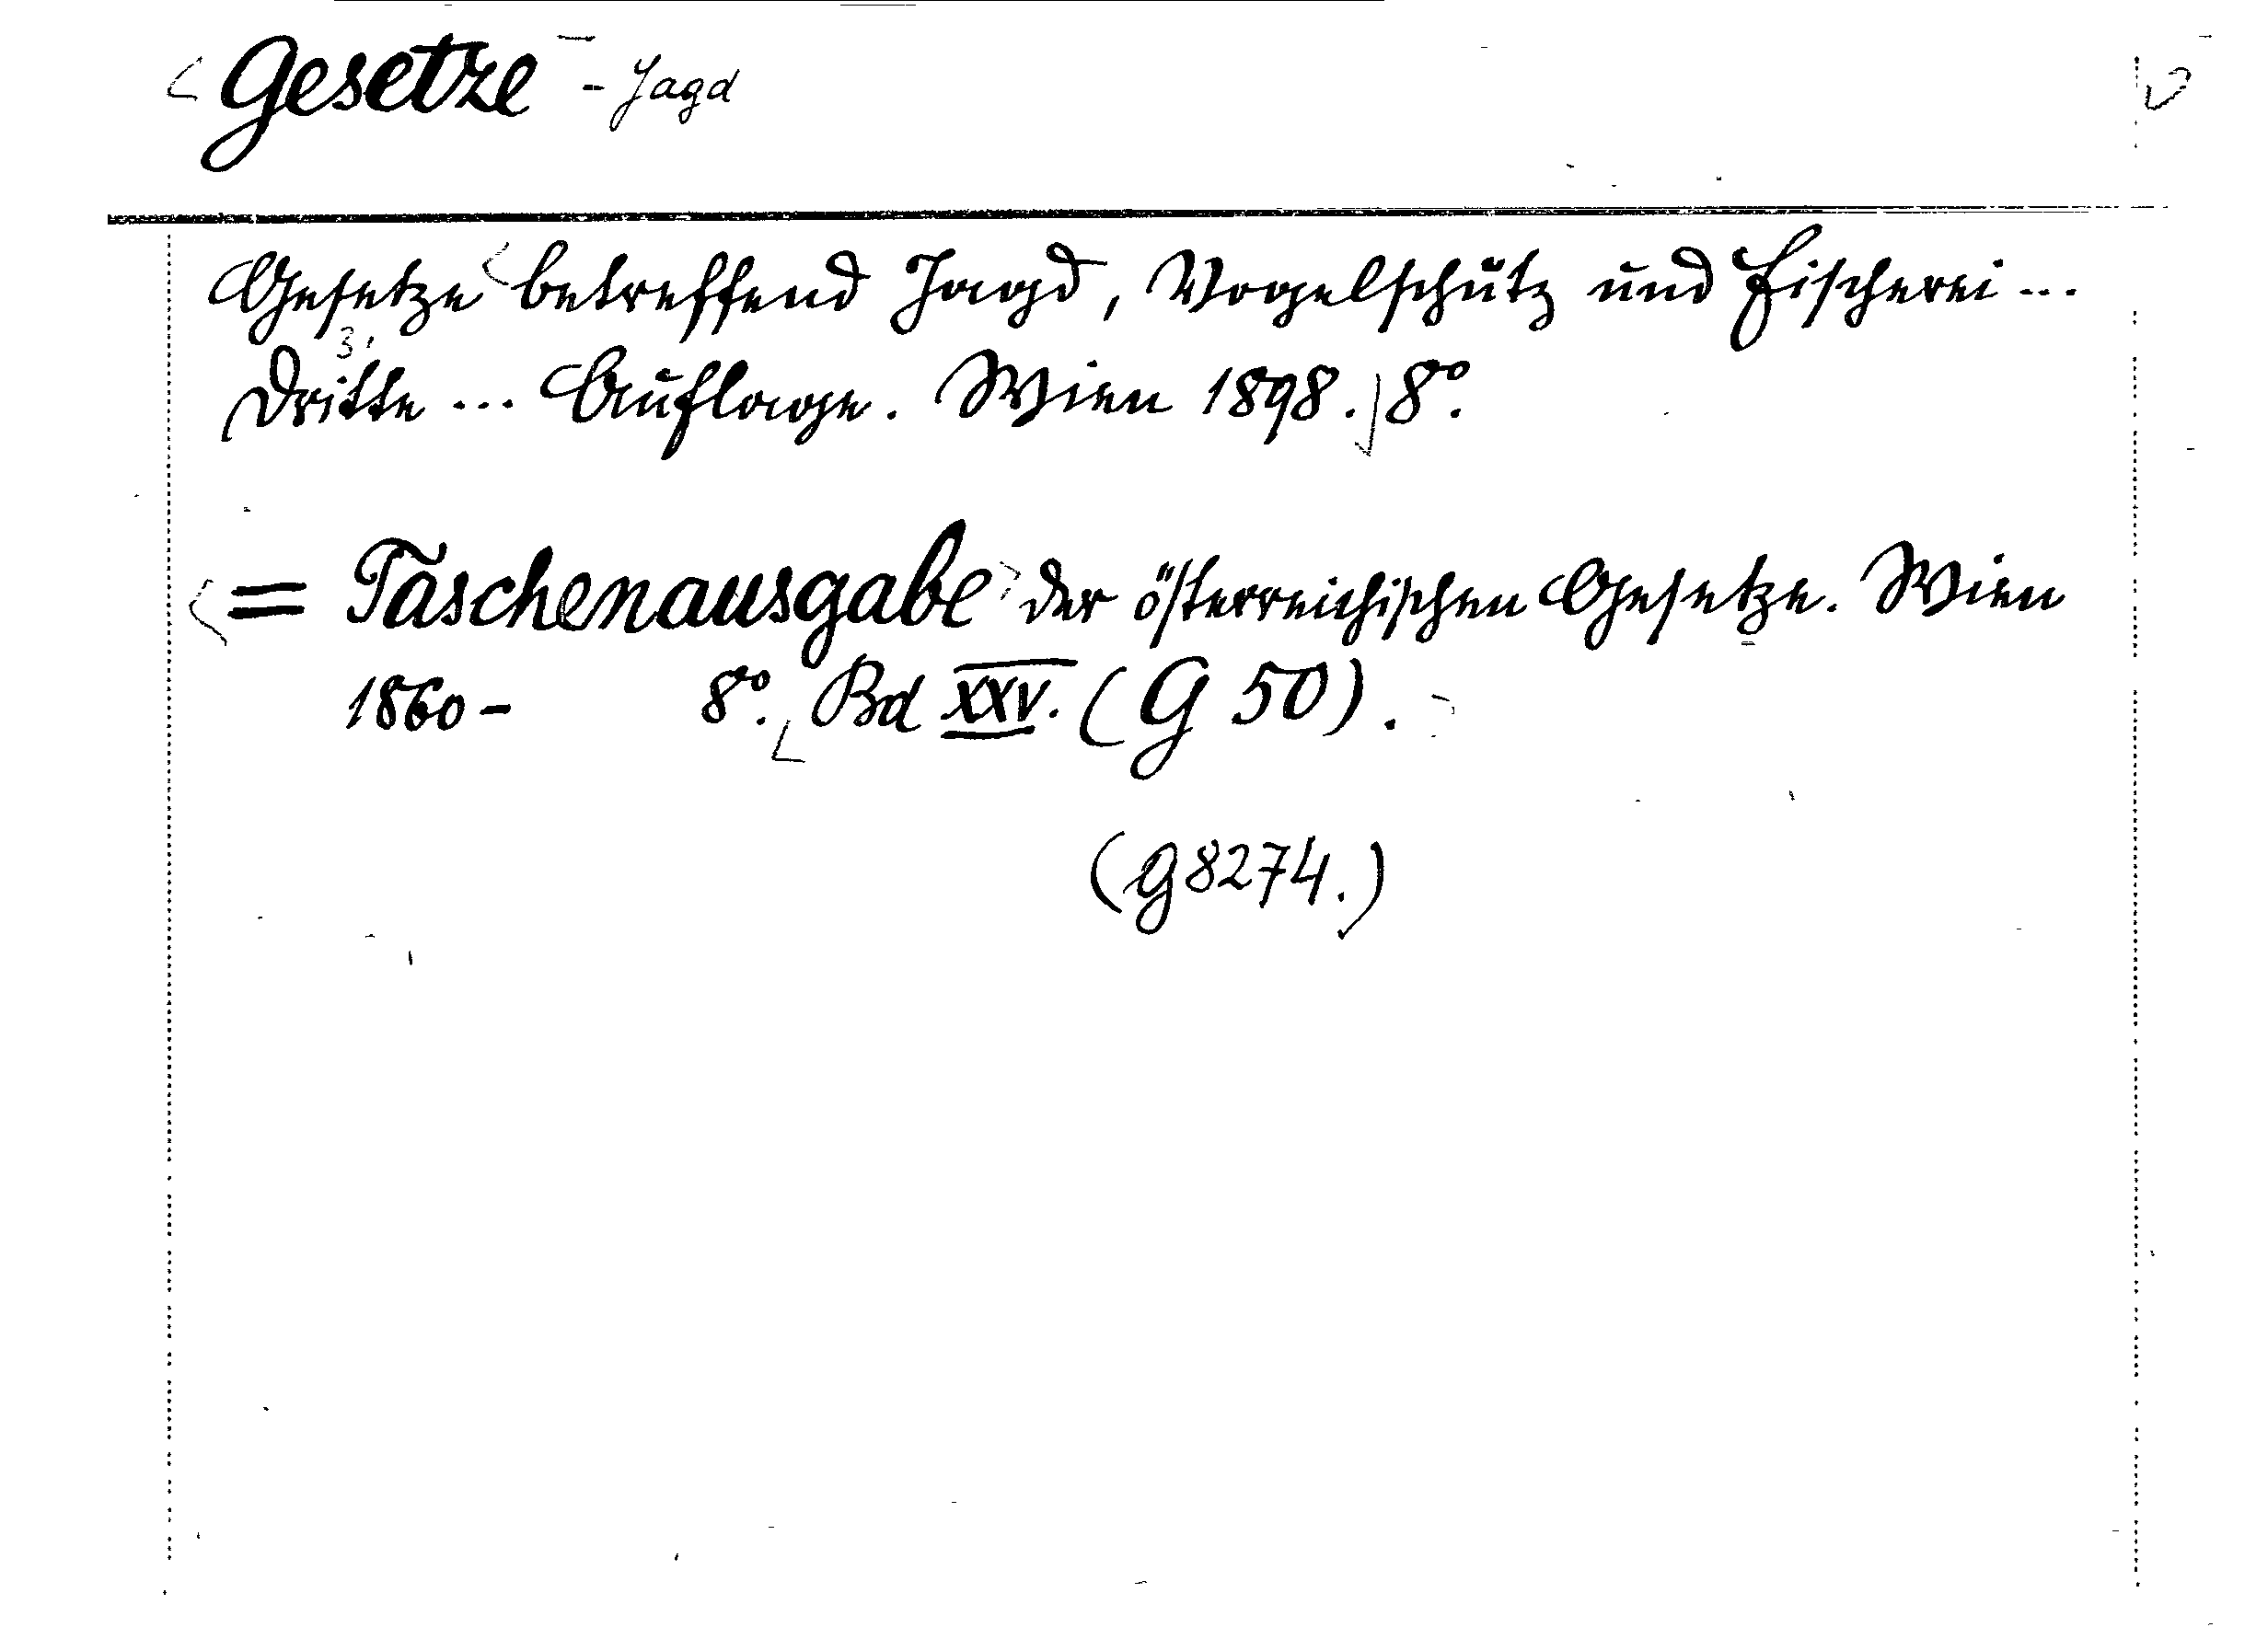 Gesetze - Jagd
Gesetze betreffend Jagd, Vogelschutz und Fischerei ...
3.
Dritte ... Auflage. Wien 1898. 8°.
= Taschenausgabe der österreichischen Gesetze. Wien
1860- 8°. Bd XXV. (G 50).
(G 8274.)